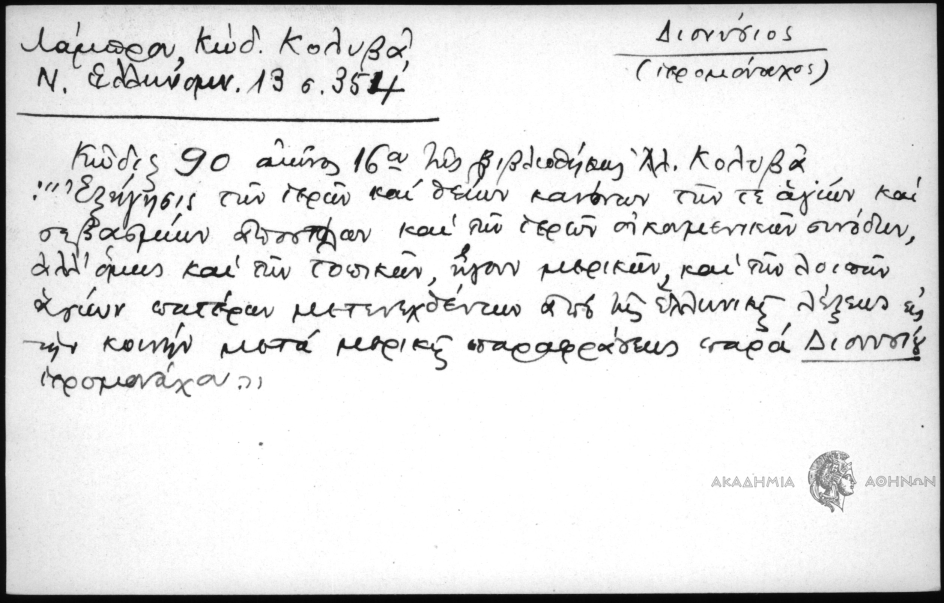 Λάμπρου, Κώδ. Κολυβᾶ,
Ν. Ἑλληνομν. 13 σ. 354
Διονύσιος
(ἱερομόναχος)
Κῶδιξ 90 αἰῶνος 16ου τῆς βιβλιοθήκης Ἀλ. Κολυβᾶ
"Ἐξήγησις τῶν ἱερῶν καὶ θείων κανόνων τῶν τε ἁγίων καὶ
σεβασμίων ἀποστόλων καὶ τῶν ἱερῶν οἰκουμενικῶν συνόδων,
ἀλλ' ὅμως καὶ τῶν τοπικῶν, ἤγουν μερικῶν, καὶ τῶν λοιπῶν
ἁγίων πατέρων μετενεχθέντων ἀπὸ τῆς ἑλληνικῆς λέξεως εἰς
τὴν κοινὴν μετὰ μερικῆς παραφράσεως παρὰ Διονυσίου
ἱερομονάχου."
ΑΚΑΔΗΜΙΑ ΑΘΗΝΩΝ